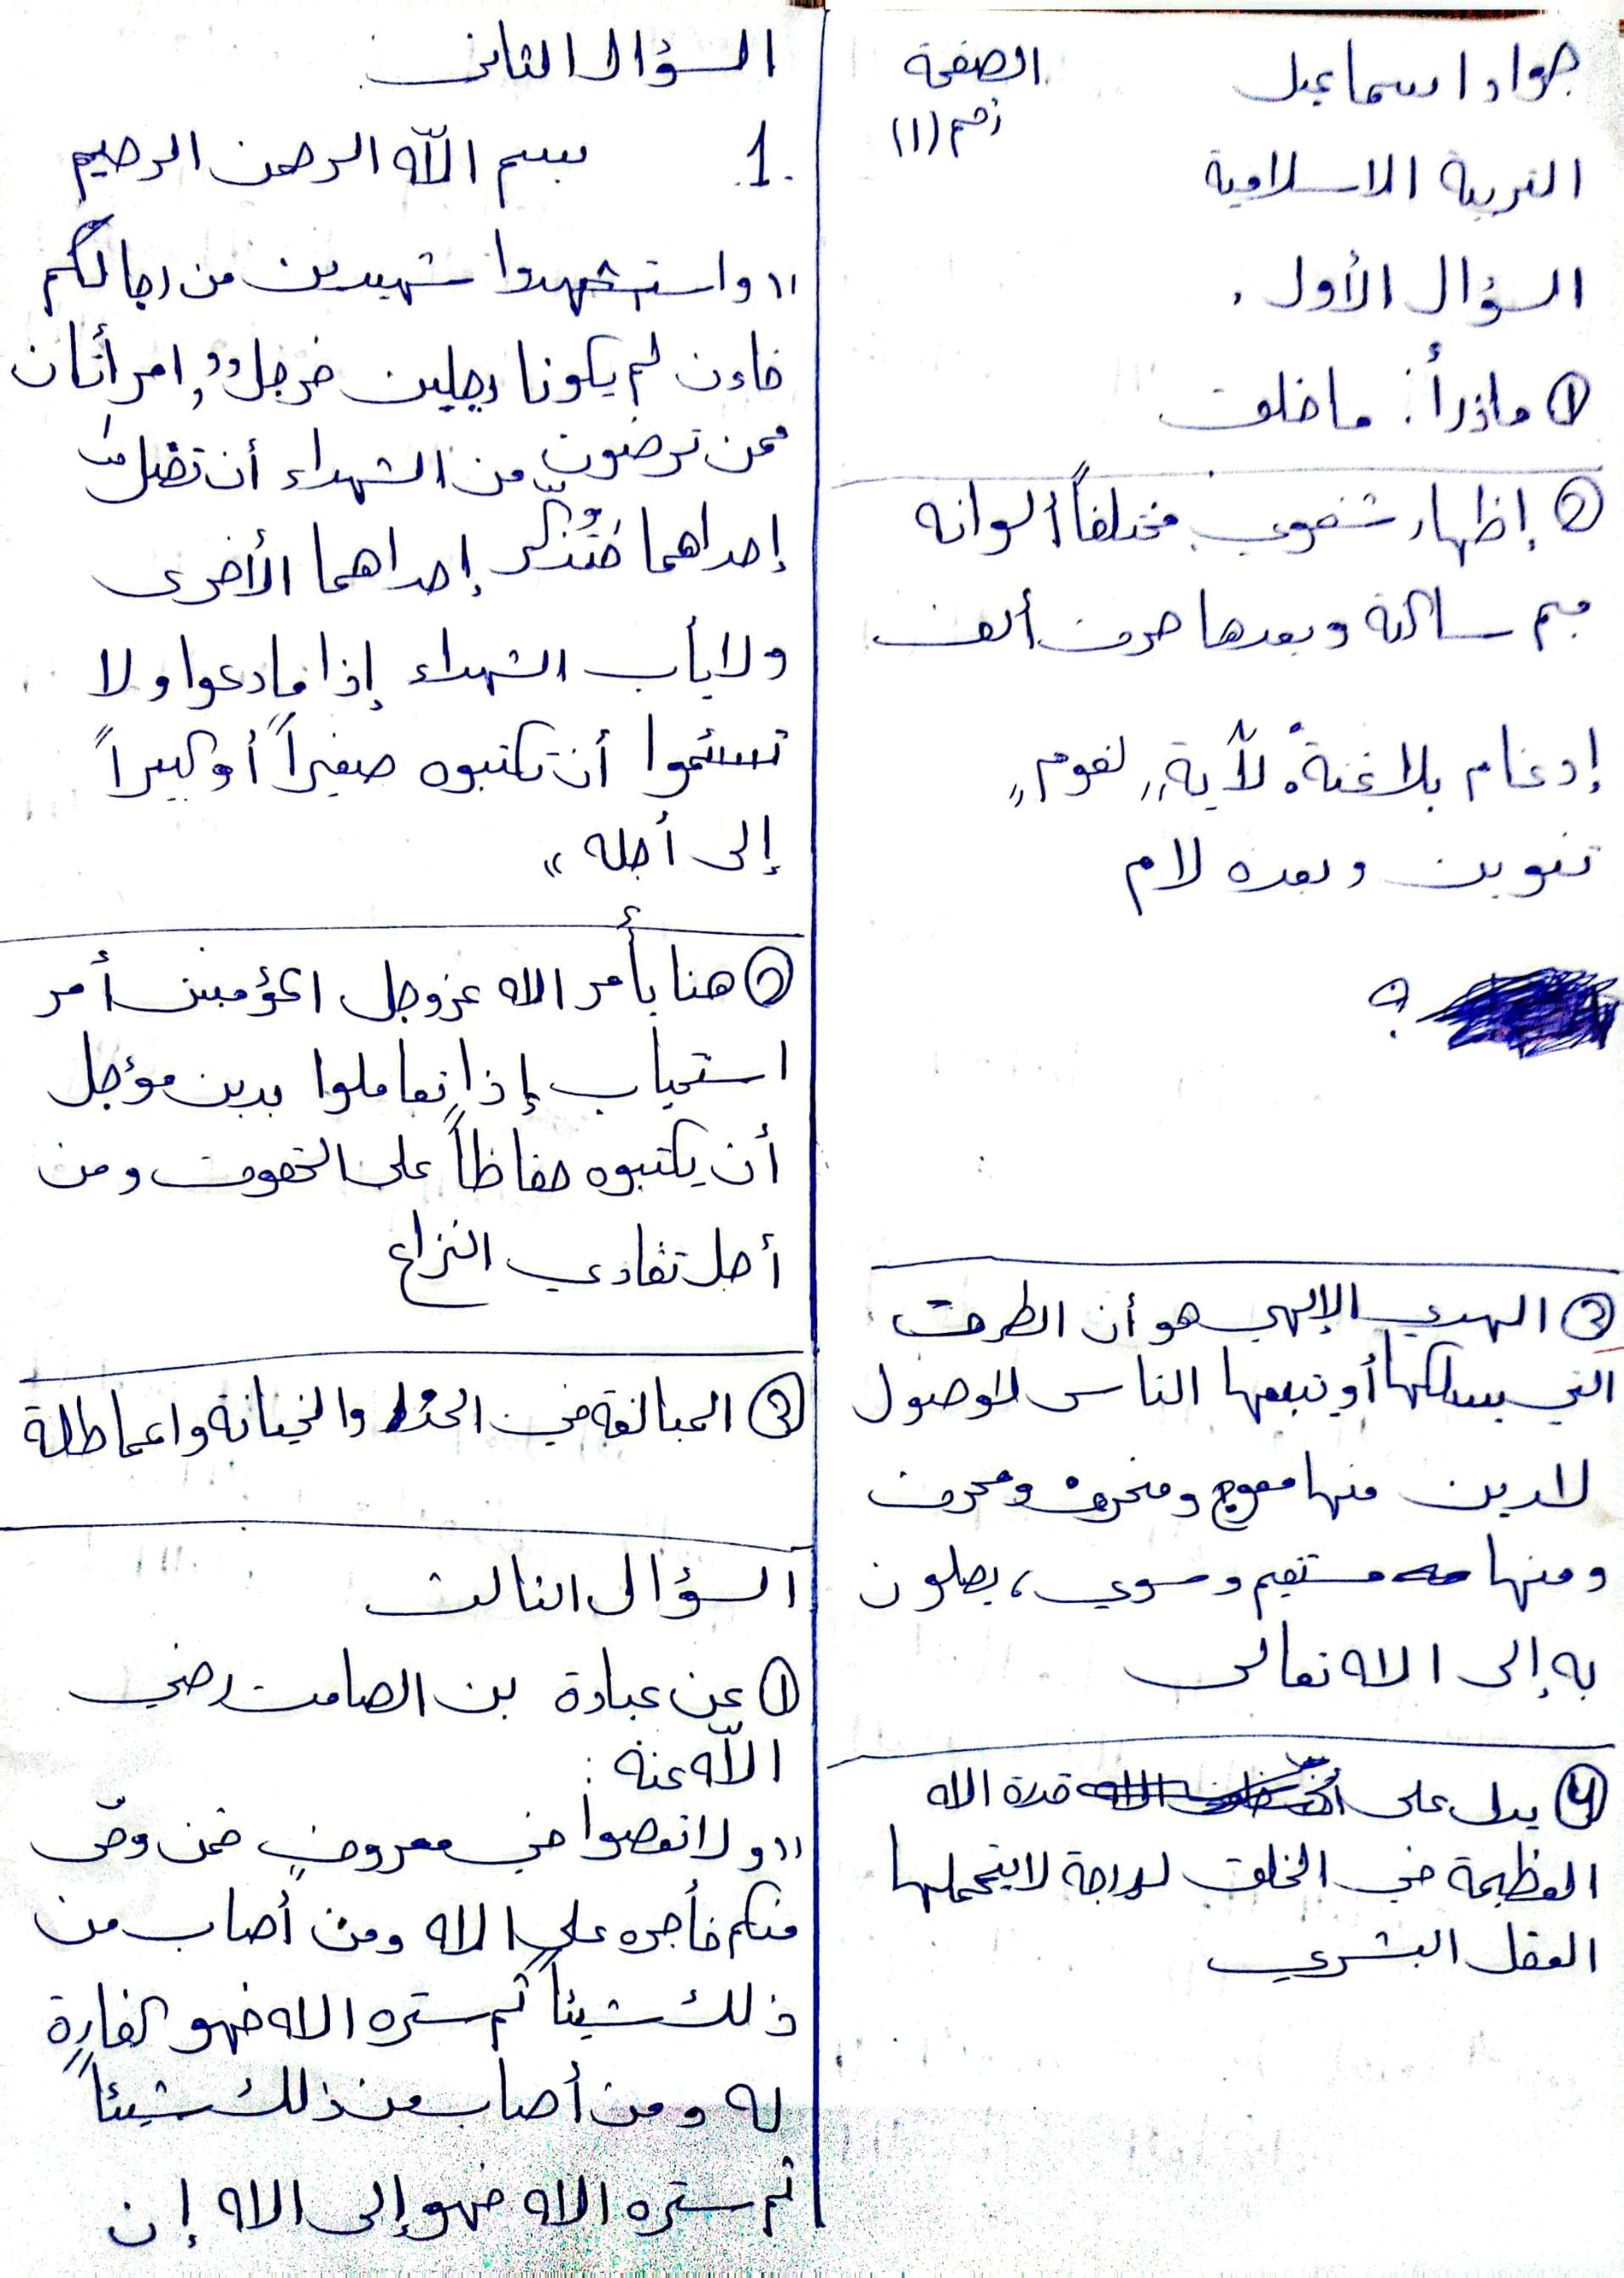 جواد اسماعيل
الصفحة
رقم (١)
التربية الاسلامية
السؤال الأول .
① ماذرأ : ما خلق
② إظهار شفوي مختلفاً ألوانه
ميم ساكنة وبعدها حرف ألف
إدغام بلا غنة لآيةً لقومٍ
تنوين وبعده لام
؟
③ الهدي الإلهي هو أن الطرق
التي يسلكها أو يتبعها الناس للوصول
للدين منها معوج ومنحرف ومحرف
ومنها مستقيم وسوي، يصلون
به إلى الله تعالى
④ يدل على قدرة الله
العظيمة في الخلق لدرجة لا يتحملها
العقل البشري
السؤال الثاني
1. بسم اللّه الرحمن الرحيم
"واستشهدوا شهيدين من رجالكم
فإن لم يكونا رجلين فرجلٌ وامرأتان
ممن ترضون من الشهداء أن تضلّ
إحداهما فتُذكّر إحداهما الأخرى
ولا يأب الشهداء إذا ما دعوا ولا
تسئموا أن تكتبوه صغيراً أو كبيراً
إلى أجله"
② هنا يأمر الله عز وجل المؤمنين أمر
استحباب إذا تعاملوا بدين مؤجل
أن يكتبوه حفاظاً على الحقوق ومن
أجل تفادي النزاع
③ المبالغة في والخيانة والمماطلة
السؤال الثالث
① عن عبادة بن الصامت رضي
اللّه عنه :
"ولا تعصوا في معروفٍ فمن وفّى
منكم فأجره على الله ومن أصاب من
ذلك شيئاً ثم ستره الله فهو كفارة
له ومن أصاب من ذلك شيئاً
ثم ستره الله فهو إلى الله إن